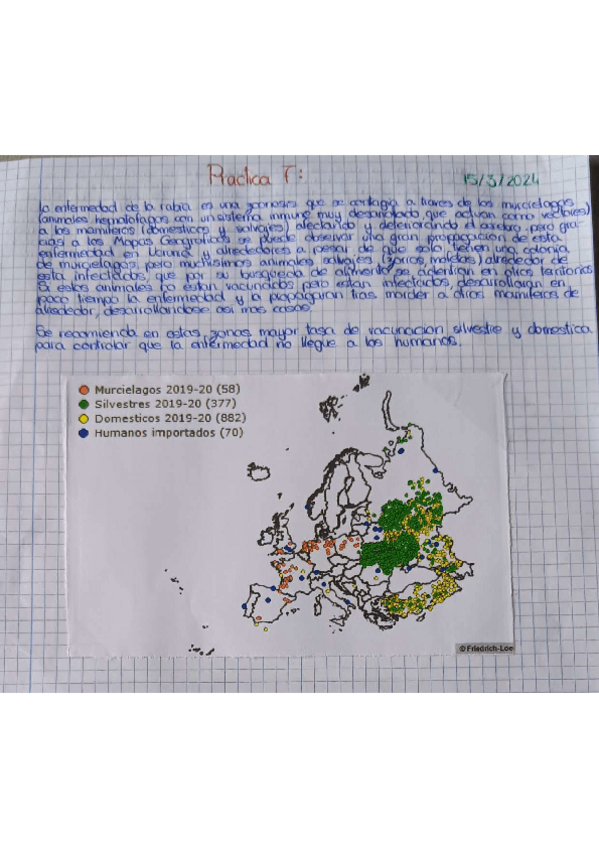 Practica 7:
15/3/2024
La enfermedad de la rabia es una zoonosis que se contagia a traves de los murcielagos
(animales hematofagos con un sistema inmune muy desarrollado, que actuan como vectores)
a los mamiferos (domesticos y salvajes) afectando y deteriorando el cerebro, pero gra-
cias a los Mapas Geograficos se puede observar una gran propagacion de esta
enfermedad en Ucrania y alrededores a pesar de que solo tienen una colonia
de murcielagos, pero muchisimos animales salvajes (zorros, mofetas) alrededor de
esta infectados, que por su busqueda de alimento se adentran en otros territorios
Si estos animales no estan vacunados pero estan infectados, desarrollaran en
poco tiempo la enfermedad y la propagaran tras morder a otros mamiferos de
alrededor, desarrollandose asi mas casos.
Se recomienda en estas zonas mayor tasa de vacunacion silvestre y domestica
para controlar que la enfermedad no llegue a los humanos.
Murcielagos 2019-20 (58)
Silvestres 2019-20 (377)
Domesticos 2019-20 (882)
Humanos importados (70)
© Friedrich-Loe